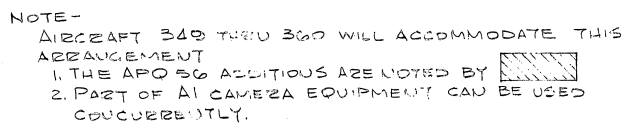 NOTE-
AIRCRAFT 349 THRU 360 WILL ACCOMMODATE THIS
ARRANGEMENT
1. THE APQ 56 ADDITIONS ARE NOTED BY
2. PART OF A1 CAMERA EQUIPMENT CAN BE USED
CONCURRENTLY.